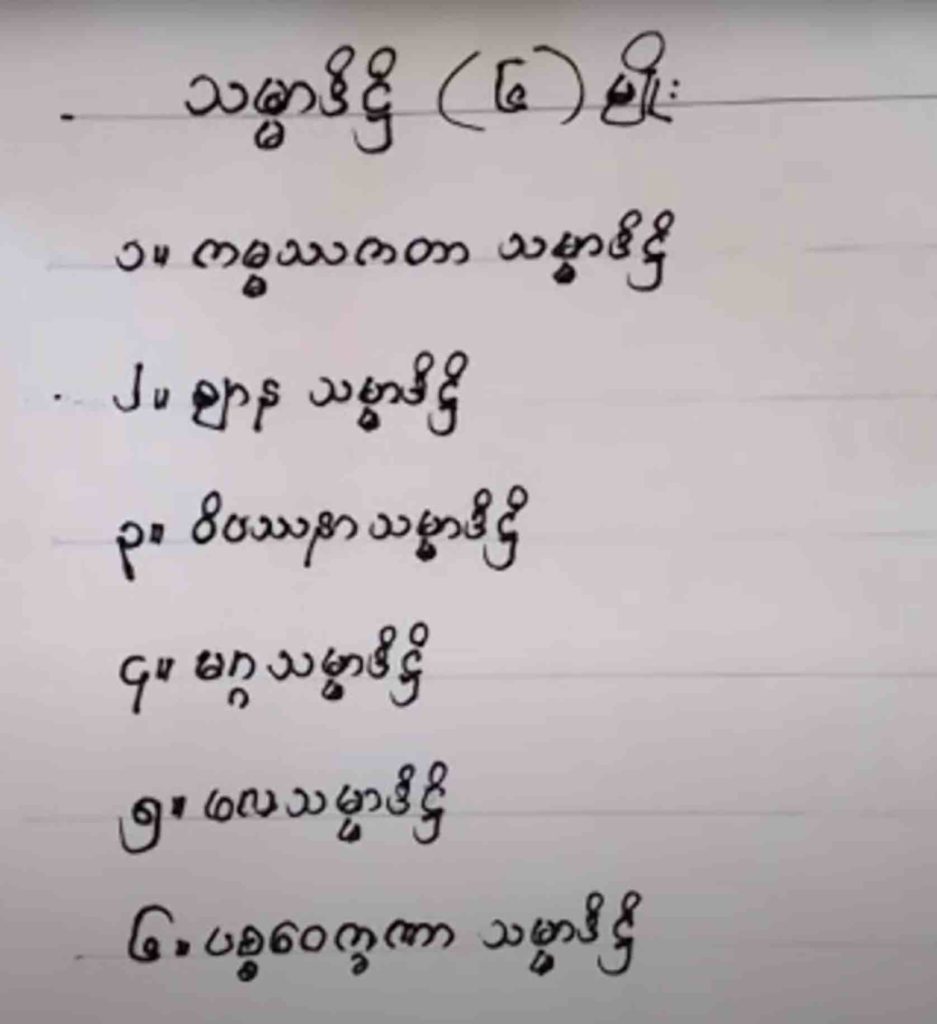 သမ္မာဒိဋ္ဌိ (၆) မျိုး
၁။ ကမ္မဿကတာ သမ္မာဒိဋ္ဌိ
၂။ ဈာန သမ္မာဒိဋ္ဌိ
၃။ ဝိပဿနာသမ္မာဒိဋ္ဌိ
၄။ မဂ္ဂ သမ္မာဒိဋ္ဌိ
၅။ ဖလသမ္မာဒိဋ္ဌိ
၆။ ပစ္စဝေက္ခဏာ သမ္မာဒိဋ္ဌိ